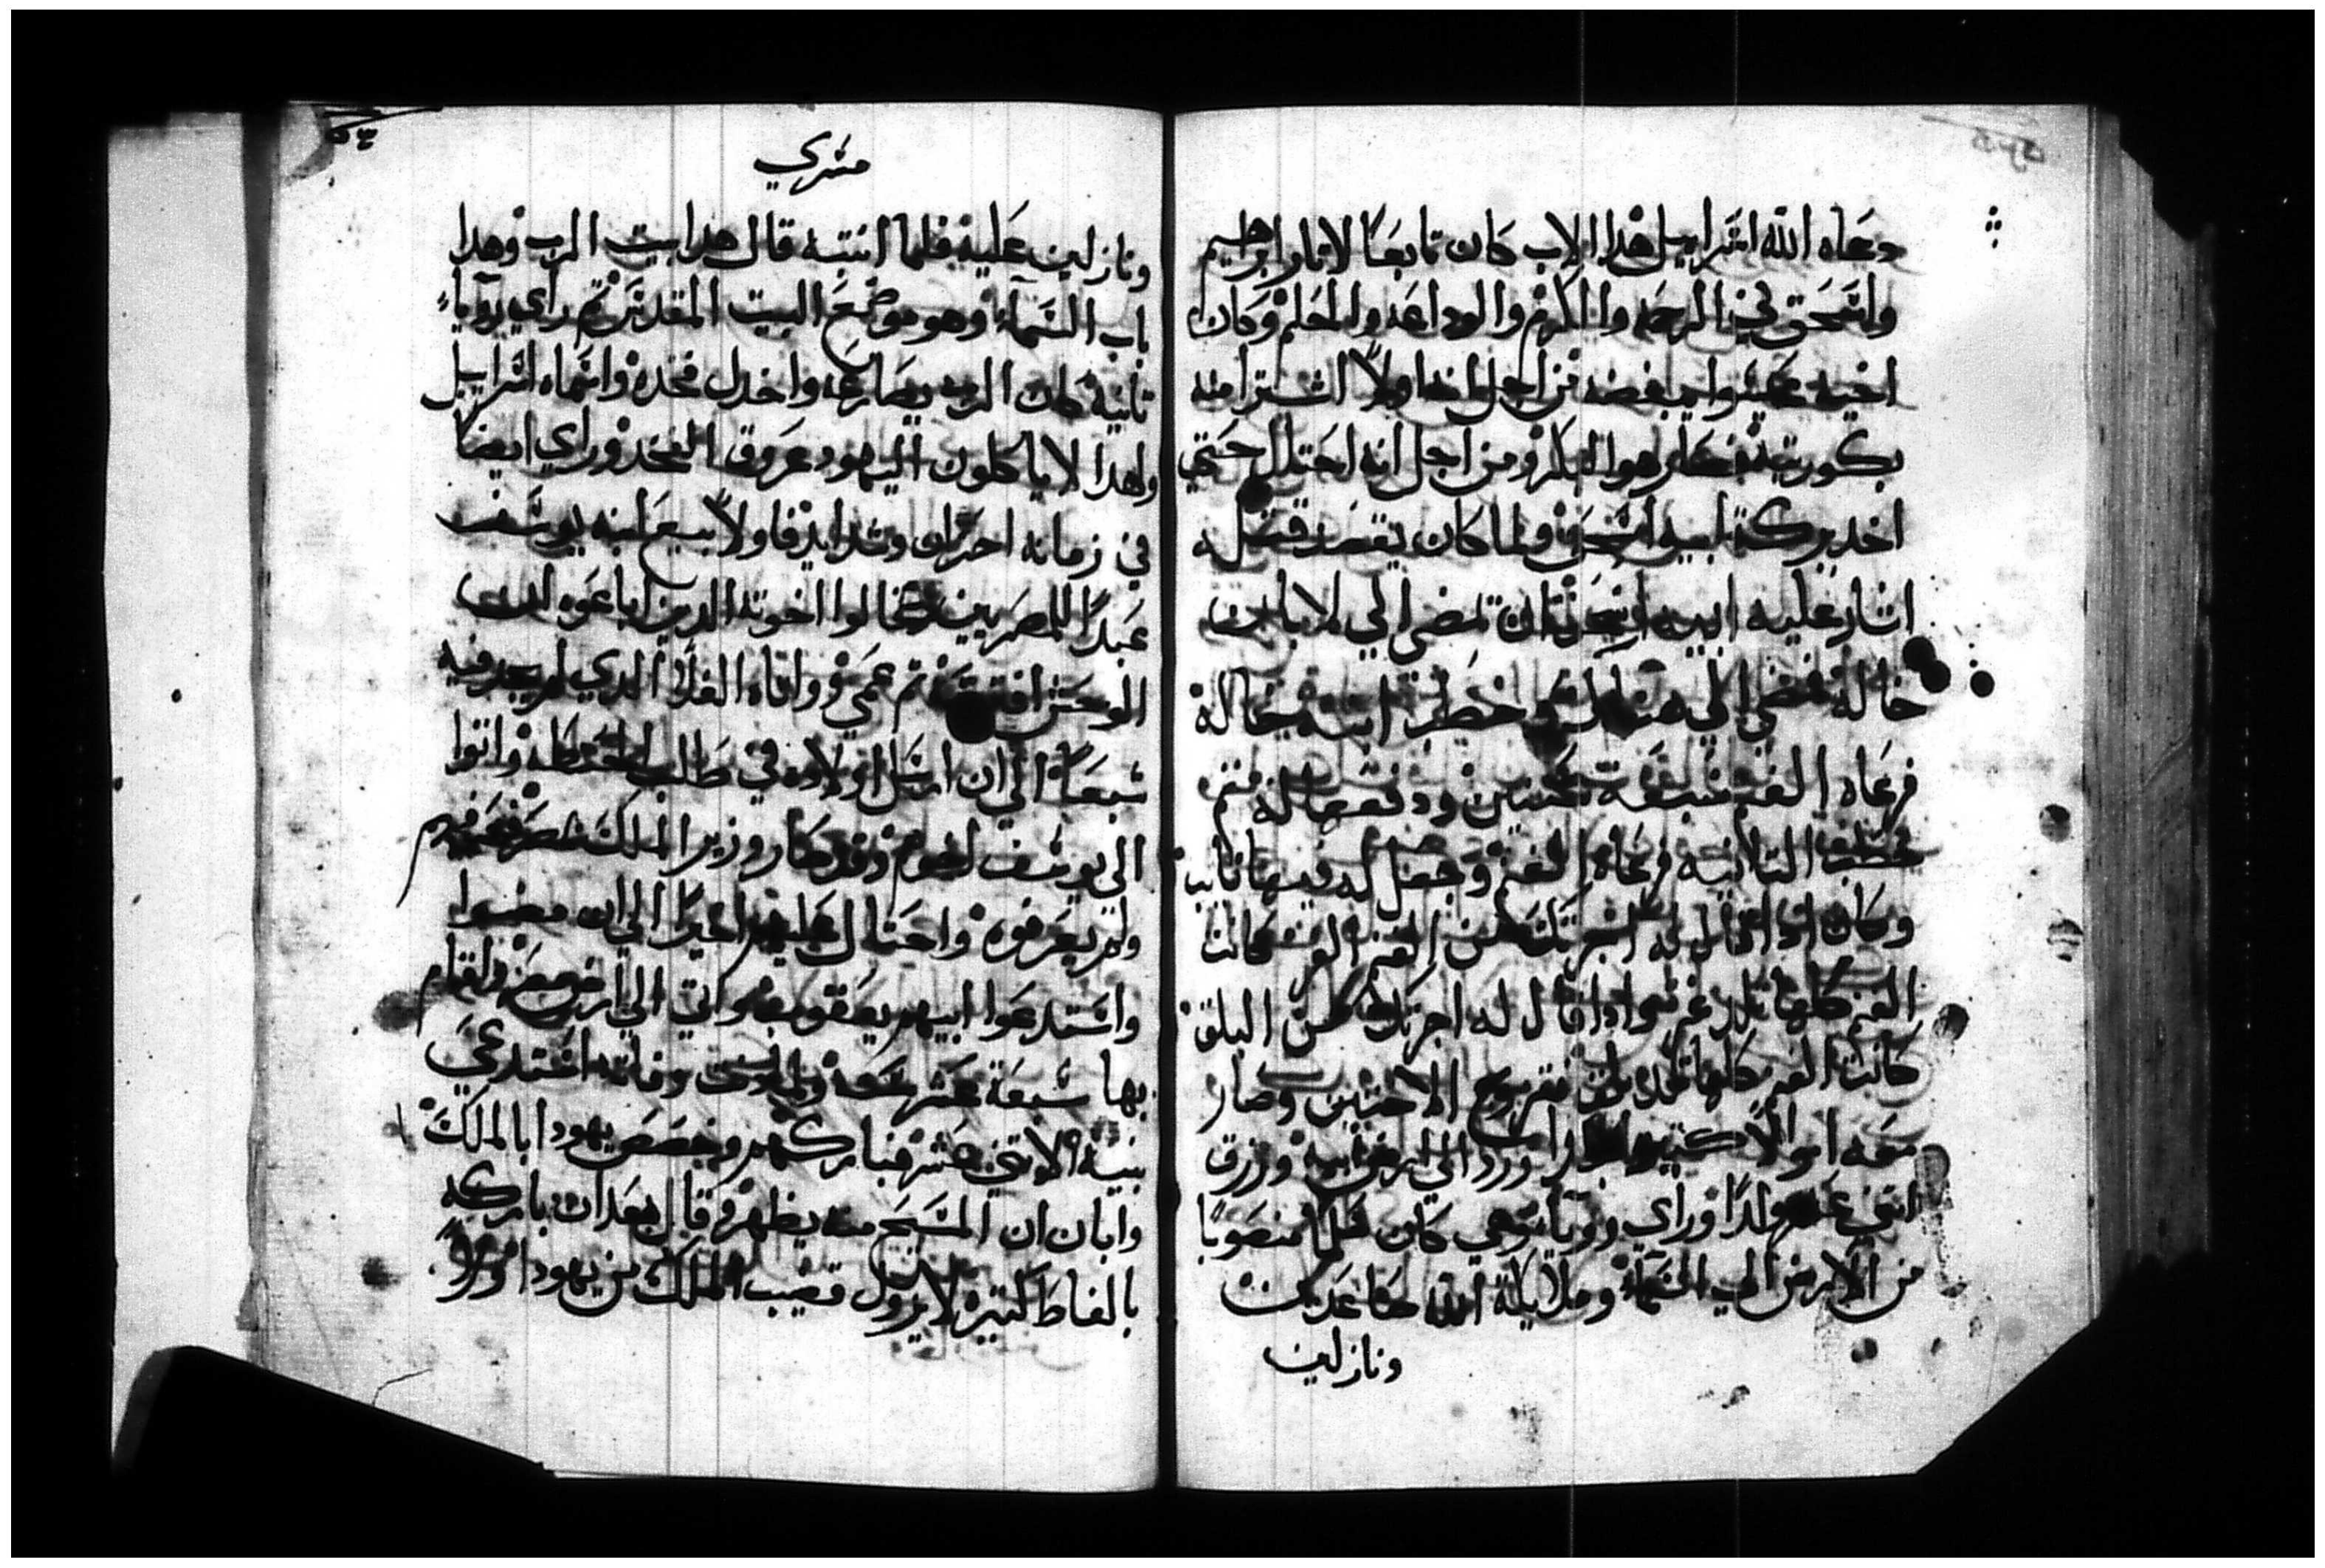 دعاه الله اسراييل هذا الاب كان تابعًا لاثار ابراهيم
واسحق في الرحمه والكرم والوداعه والحلم وكان
اخيه عيسوا يبغضه من اجل انه اولاً اشترا منه
بكوريته فصار هوا البكر ومن اجل انه احتال حتي
اخد بركة ابيه اسحق ولما كان يقصد قتله
اشار عليه ابيه اسحق ان يمضي الي لابان
خاله فمضي الي هناك وخطب ابنة خاله
فرعاه الغنم سبعة سنين ودفعها له ثم
خطب التانيه فرعاه الغنم وجعل له فيها نايب
وكان ادا قال له اجرتك من الغنم الغر كانت
الغنم كلها تلد غر وادا قال له اجرتك من البلق
كانت الغنم كلها تلد بلق فتزوج الاختين وصار
معه اموالا كتيره ورد الي ارض ابيه ورزق
اتني عشر ولدًا وراي رويا وهي كان سلمًا منصوبًا
من الارض الي السماء وملايكة الله صاعدين
ونازلين
مسري
ونازلين عليه فلما انتبه قال هدا بيت الرب وهدا
باب السماء وهو موضع البيت المقدس ثم راي رويا
تانية كان الرب يصارعه واخدل فخده واسماه اسراييل
ولهدا لا ياكلون اليهود عروق الفخد وراي ايضًا
في زمانه احزان وشدايد فاولاً بيع ابنه يوسف
عبدًا للمصريين وقالوا اخوته الدين اباعوه ان
الوحش افترسه ثم عمي ووافاه الغلا الدي لم يجد فيه
شبعًا الي ان ارسل اولاده في طلب الحنطه واتوا
الي يوسف اخوهم وقد صار وزير الملك بمصر فعرفهم
ولم يعرفوه واحتال عليهم اخيرًا الي ان مضوا
واستدعوا ابيهم يعقوب واتي الي ارض مصر واقام
بها سبعة عشر سنه ولما دنت وفاته استدعي
بنيه الاتني عشر فباركهم وخصص يهودا بالملك
وابان ان المسيح منه يظهر وقال بعد ان باركه
بالفاظ كتيره لا يزول قضيب الملك من يهودا ولا